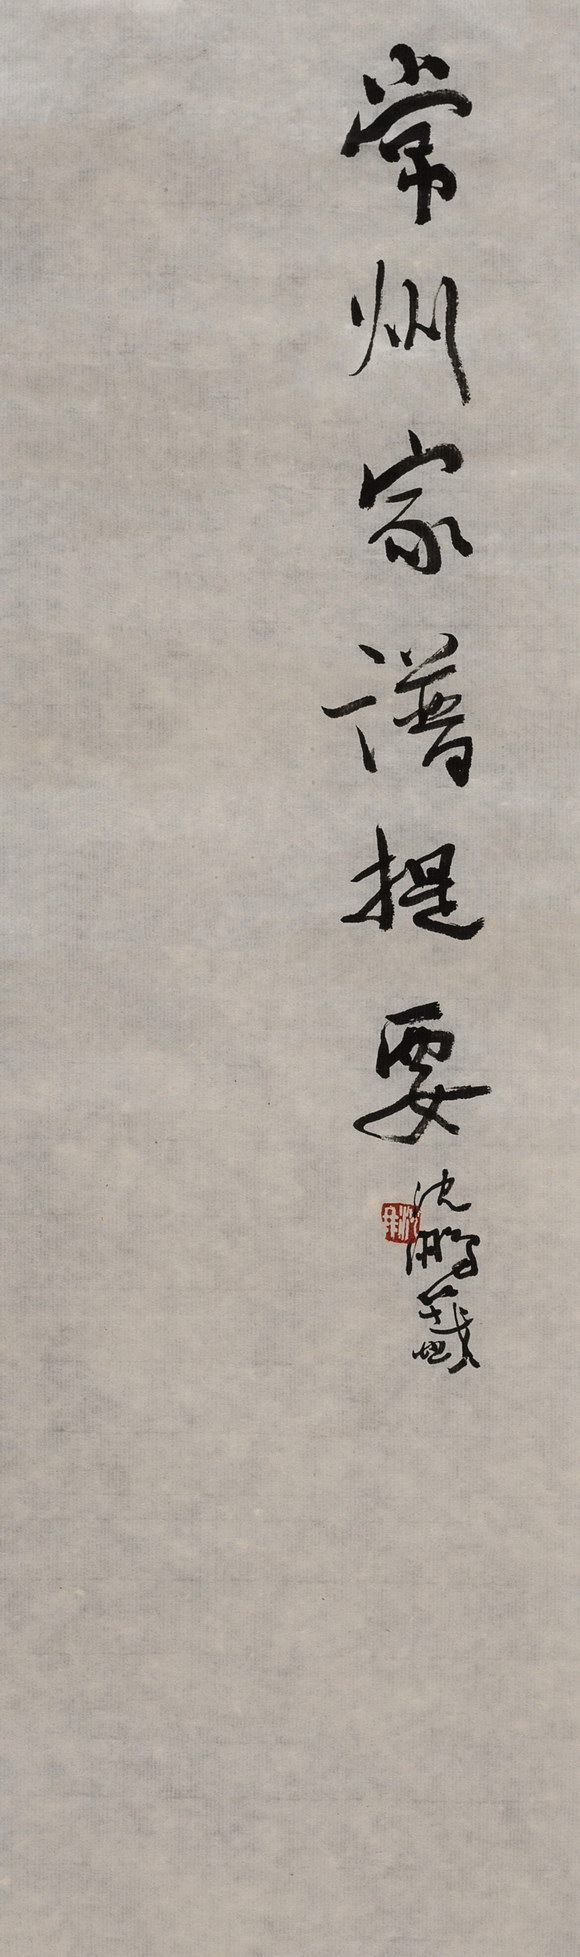 常州家谱提要
沈鹏署